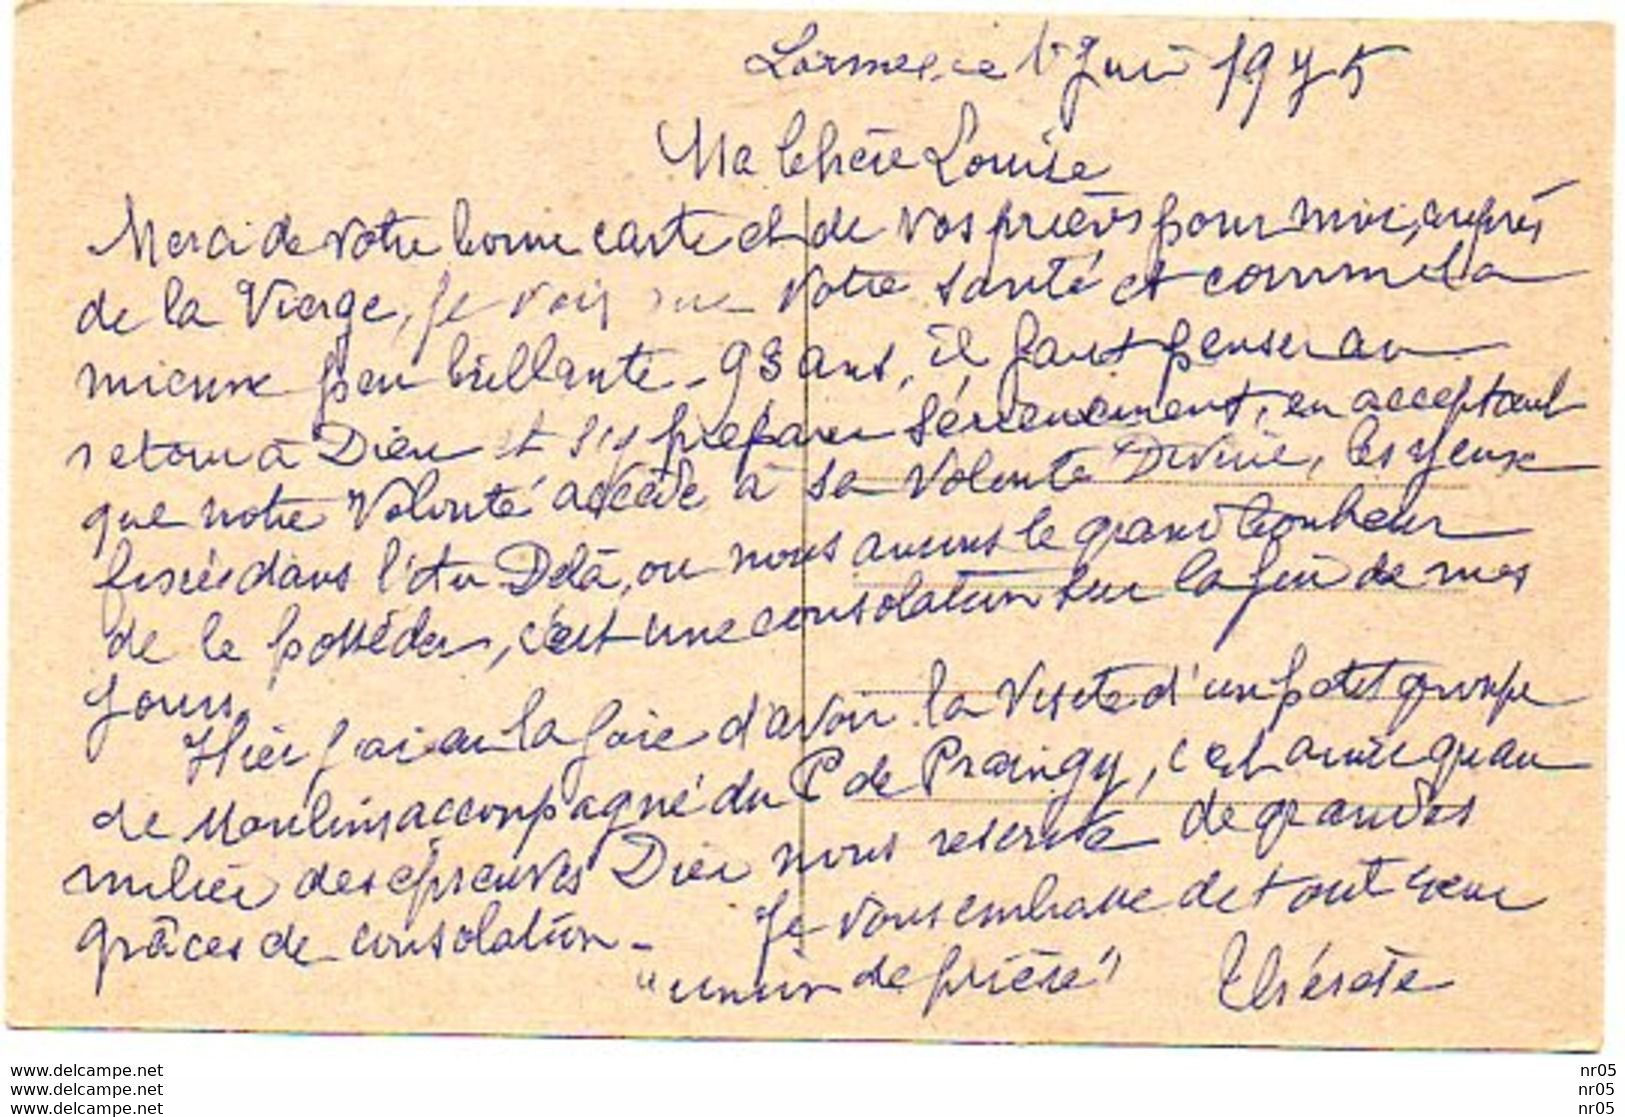 Lormes, le 1er Juin 1975
Ma Chère Louise
Merci de votre bonne carte et de vos prières pour moi, auprès
de la Vierge, je vois que votre santé est comme la
mienne peu brillante - 93 ans, il faut penser au
retour à Dieu et s'y préparer sereinement, en acceptant
que notre Volonté accède à sa Volonté Divine, les yeux
fixés dans l'Au Delà, ou nous aurons le grand bonheur
de le posséder, c'est une consolation sur la fin de mes
jours.
Hier j'ai eu la joie d'avoir la visite d'un petit groupe
de Moulins accompagné du P de Praingy, c'est ainsi qu'au
milieu des épreuves Dieu nous reserve de grandes
grâces de consolation -
Je vous embrasse de tout cœur
"union de prière" Thérèse
www.delcampe.net
www.delcampe.net
www.delcampe.net
nr05
nr05
nr05